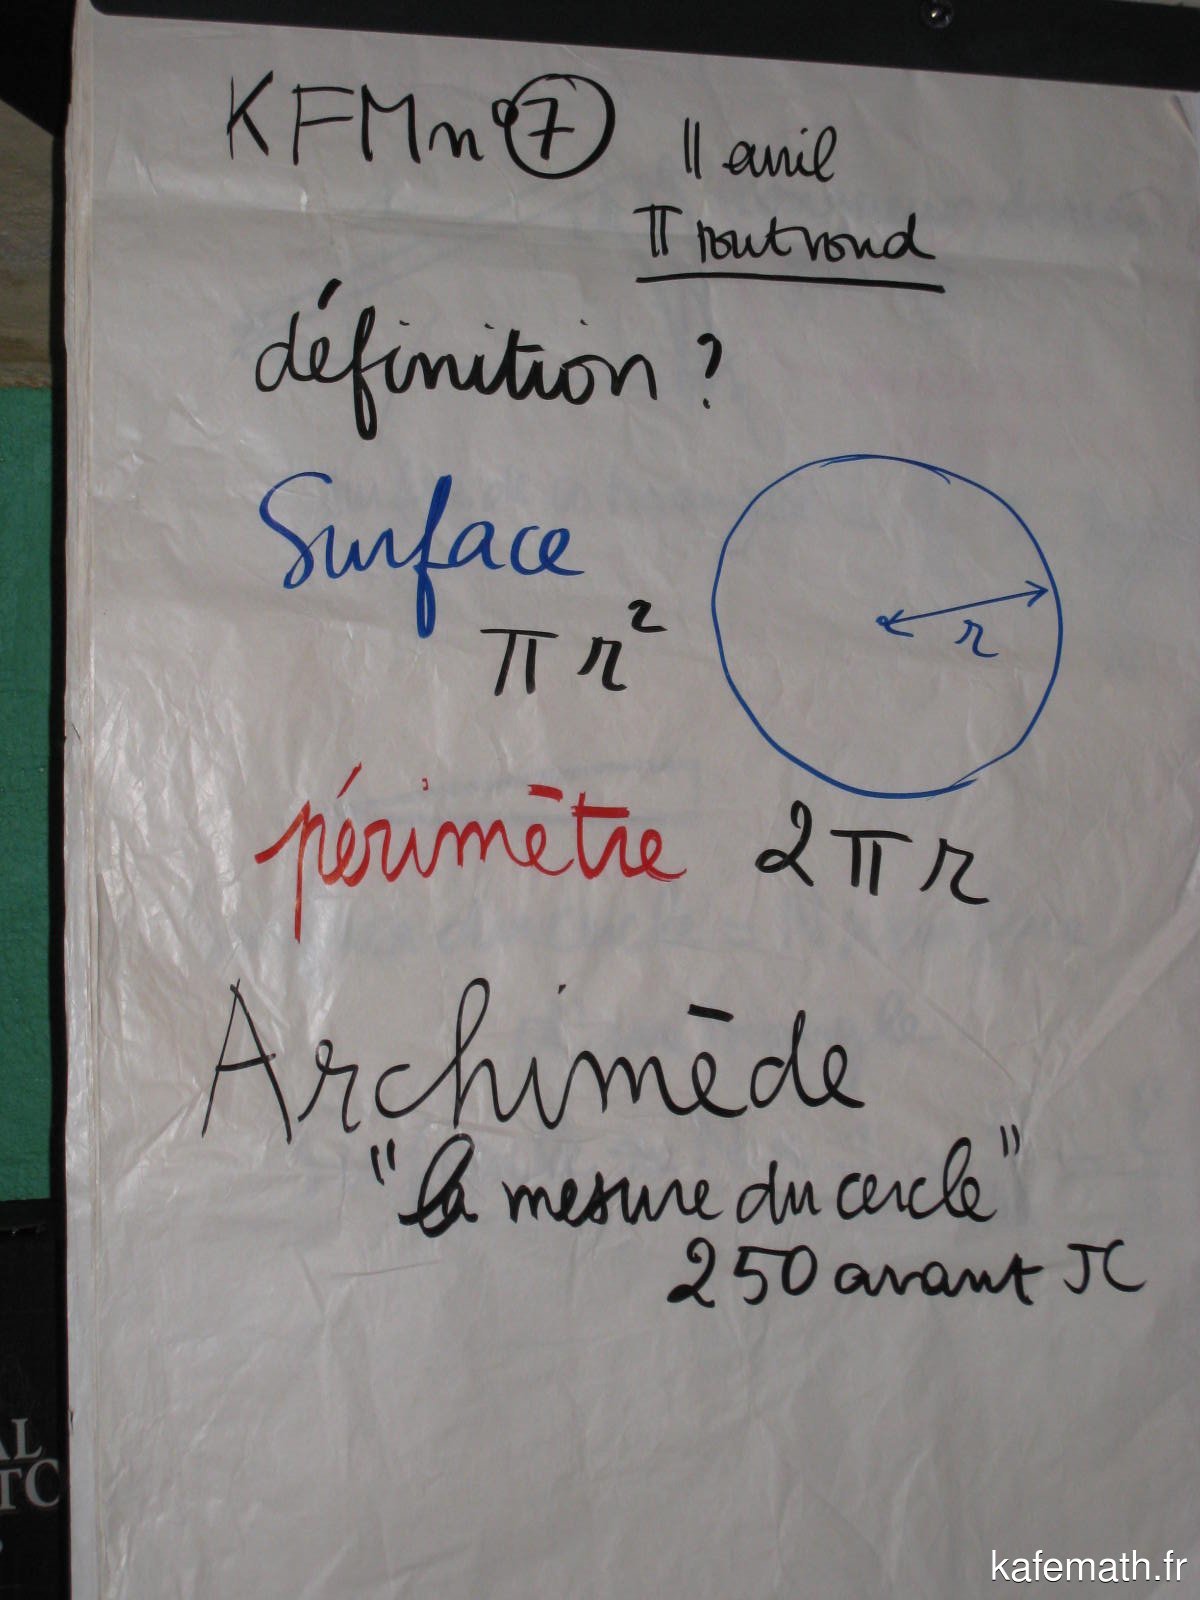 KFM n°7 11 avril
π tout rond
définition ?
Surface
π r²
r
périmètre 2 π r
Archimède
"la mesure du cercle"
250 avant JC
AL
TC
kafemath.fr